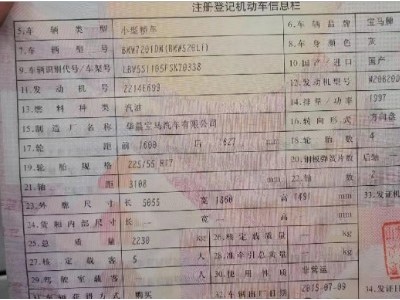 注册登记机动车信息栏
5.车辆类型 小型轿车 6.车辆品牌 宝马牌
7.车辆型号 8.车身颜色 灰
9.车辆识别代号/车架号 10.国产/进口 国产
11.发动机号 12.发动机型号
13.燃料种类 汽油 14.排量/功率 1997
15.制造厂名称 华晨宝马汽车有限公司 16.转向形式 方向盘
17.轮距 前1600 后1627 mm 18.轮胎数 4
19.轮胎规格 225/55 R17 20.钢板弹簧片数 后轴
21.轴距 3108 mm 22.轴数 2
23.外廓尺寸 长 5055 宽 1860 高 1491 mm 33.发证机
24.货厢内部尺寸 长 宽 高 mm
25.总质量 2230 kg 26.核定载质量 kg
27.核定载客 5 人 28.准牵引总质量 kg
29.驾驶室载客 人 30.使用性质 非营运 34.发证
31.车辆获得方式 购买 32.车辆出厂日期 2015-07-09